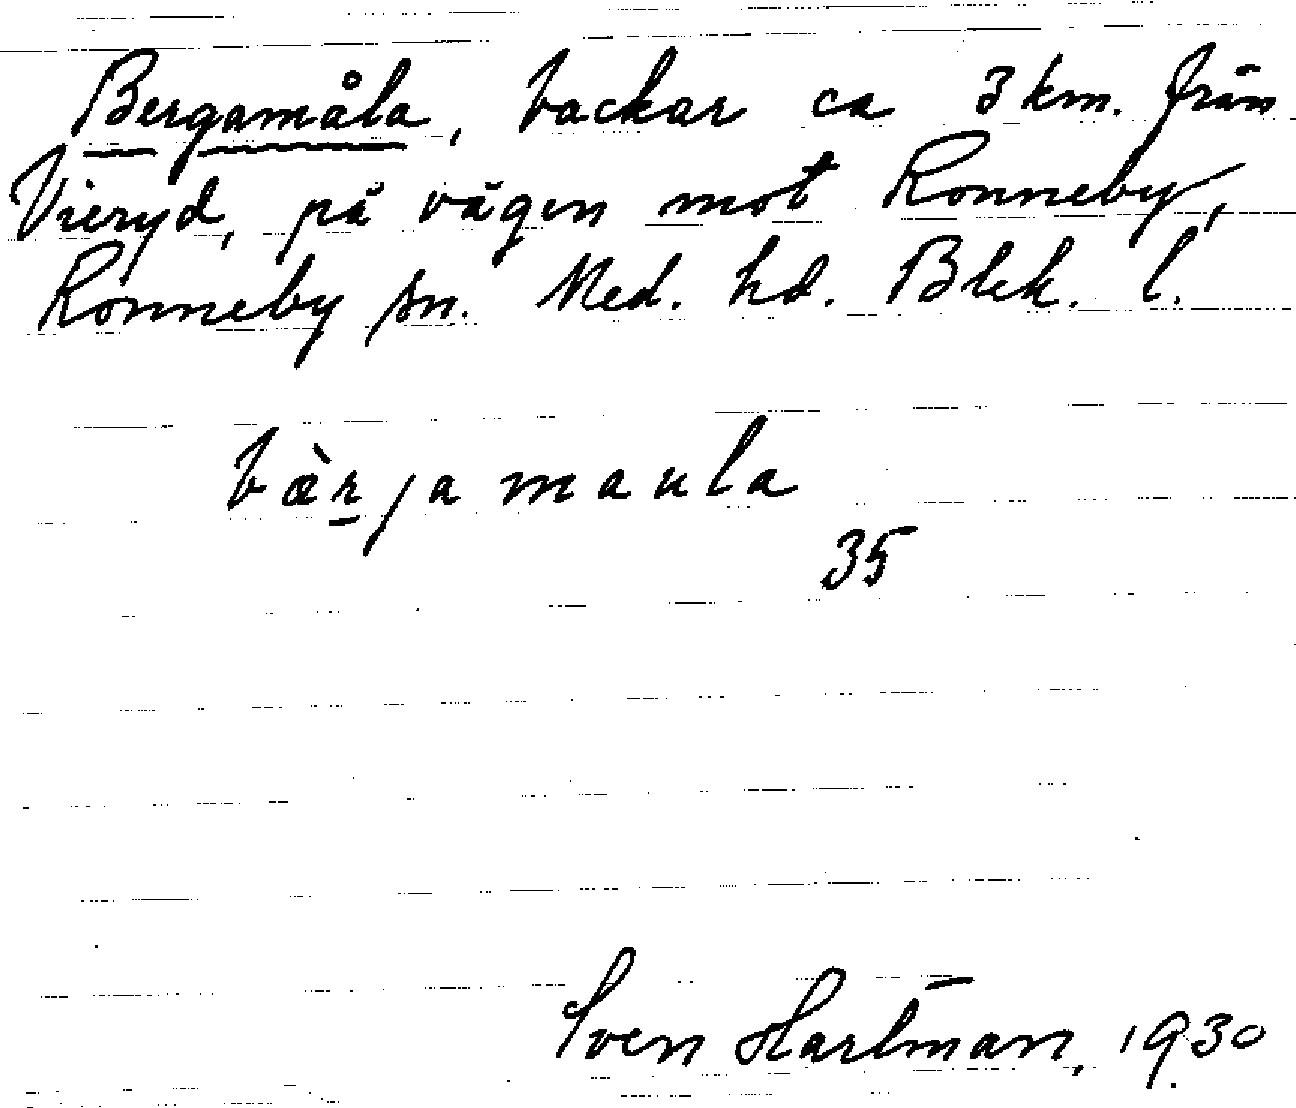 Bergamåla, backar ca 3 km. från
Vieryd, på vägen mot Ronneby,
Ronneby sn. Med. hd. Blek. l.
bæ̀r̲jamaula
35
Sven Hartman, 1930